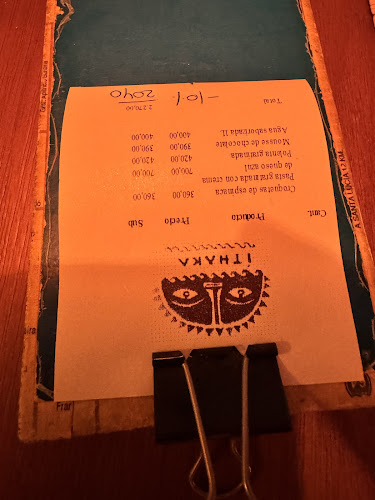 ITHAKA
Cant. Producto Precio Sub
Croquetas de espinaca 360,00 360,00
Pasta gratinada con crema
de queso azul 700,00 700,00
Polenta gratinada 420,00 420,00
Mousse de chocolate 390,00 390,00
Agua saborizada 1l. 400,00 400,00
Total 2.270,00
-10%
2040
A SANTA LUCIA 12 KM